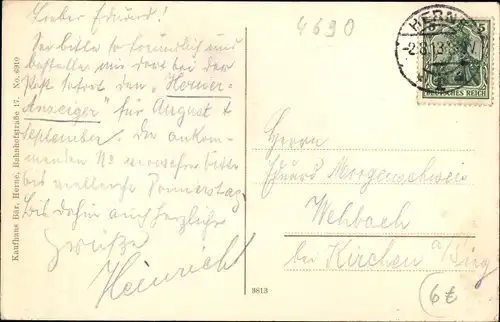 Lieber Eduard!
Sei bitte so freundlich und
bestelle mir dort bei der
Post sofort den „Herner-
Anzeiger" für August &
September. Die ankom-
menden No verwahre bitte
bis vielleicht Donnerstag.
Bis dahin auch herzliche
Grüße
Heinrich
4690
HERNE
-2.8.13.
DEUTSCHES REICH
Herrn
Eduard Morgenschweis
Wehbach
bei Kirchen a/Sieg
6£
3813
Kaufhaus Bär, Herne, Bahnhofstraße 17. No. 6910